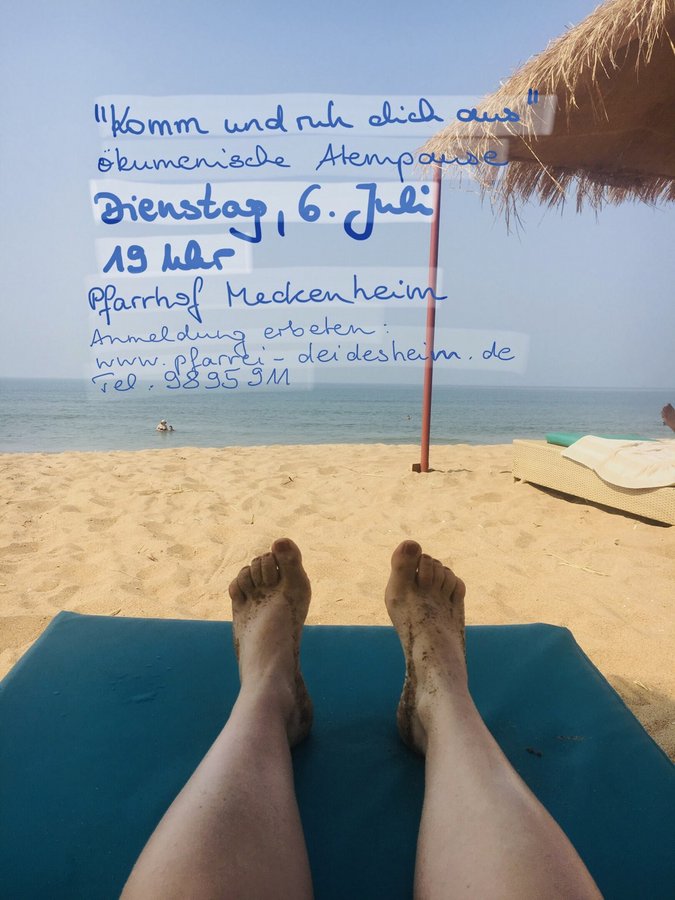 "Komm und ruh dich aus"
ökumenische Atempause
Dienstag, 6. Juli
19 Uhr
Pfarrhof Meckenheim
Anmeldung erbeten:
www.pfarrei-deidesheim.de
Tel. 9895911